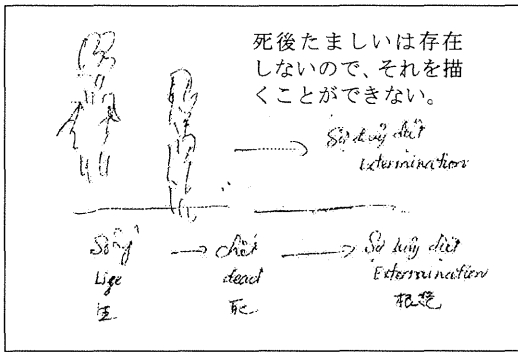 死後たましいは存在
しないので、それを描
くことができない。
Sự huỷ diệt
Extermination
Sống chết Sự huỷ diệt
Lige dead Extermination
生 死 根絶